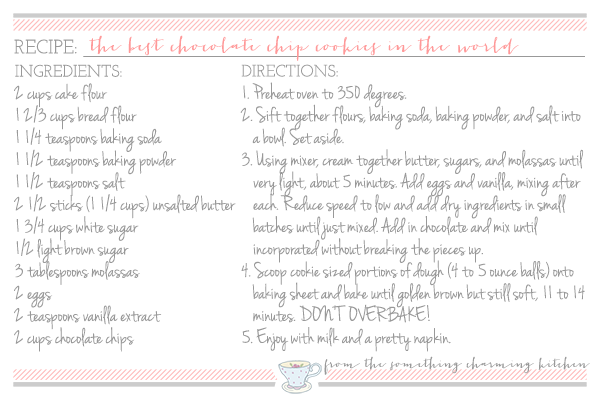 RECIPE: the best chocolate chip cookies in the world
INGREDIENTS:
2 cups cake flour
1 2/3 cups bread flour
1 1/4 teaspoons baking soda
1 1/2 teaspoons baking powder
1 1/2 teaspoons salt
2 1/2 sticks (1 1/4 cups) unsalted butter
1 3/4 cups white sugar
1/2 light brown sugar
3 tablespoons molassas
2 eggs
2 teaspoons vanilla extract
2 cups chocolate chips
DIRECTIONS:
1. Preheat oven to 350 degrees.
2. Sift together flours, baking soda, baking powder, and salt into
a bowl. Set aside.
3. Using mixer, cream together butter, sugars, and molassas until
very light, about 5 minutes. Add eggs and vanilla, mixing after
each. Reduce speed to low and add dry ingredients in small
batches until just mixed. Add in chocolate and mix until
incorporated without breaking the pieces up.
4. Scoop cookie sized portions of dough (4 to 5 ounce balls) onto
baking sheet and bake until golden brown but still soft, 11 to 14
minutes. DON'T OVERBAKE!
5. Enjoy with milk and a pretty napkin.
from the something charming kitchen